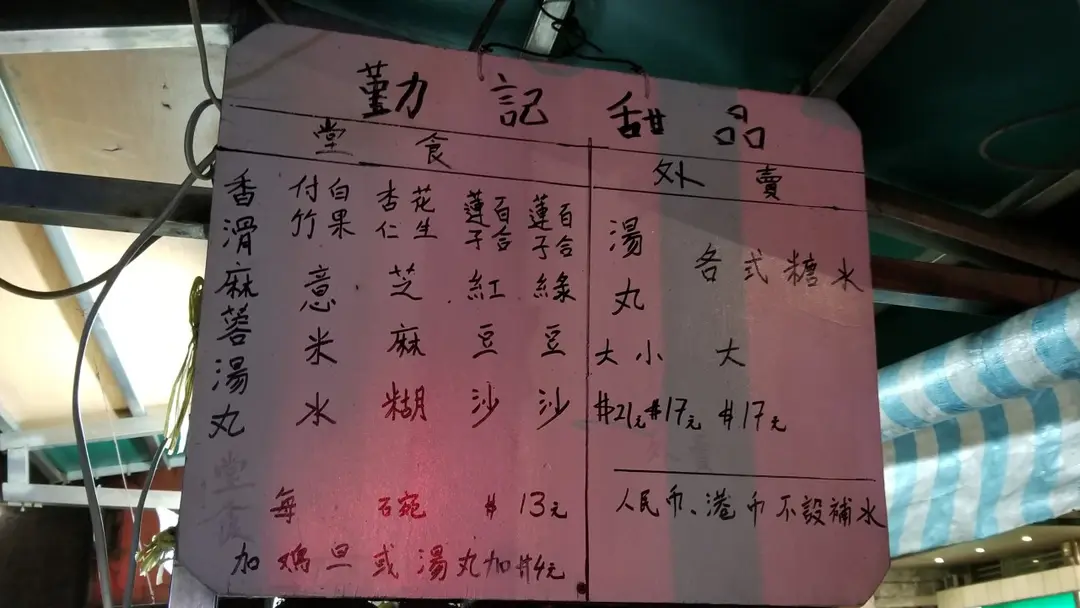 勤記甜品
堂食
香滑麻蓉湯丸
付竹白果意米水
杏仁花生芝麻糊
蓮子百合紅豆沙
蓮子百合綠豆沙
每碗$13元
加鸡旦或湯丸加$4元
外賣
湯丸
大小
$21元$17元
各式糖水
大
$17元
人民币、港币不設補水
堂食